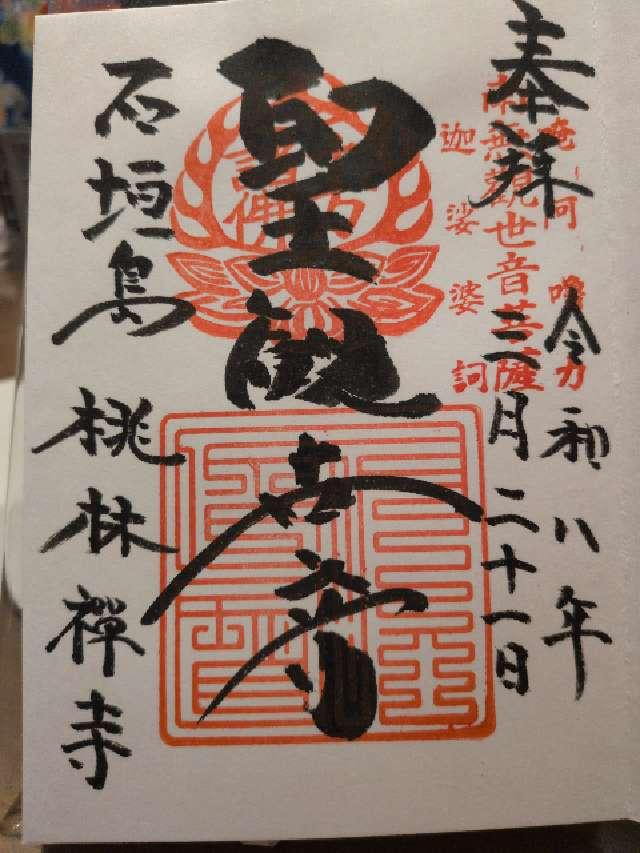 奉拝
令和八年
三月二十一日
南無観世音菩薩
迦婆婆訶
聖観世音
石垣島 桃林禅寺